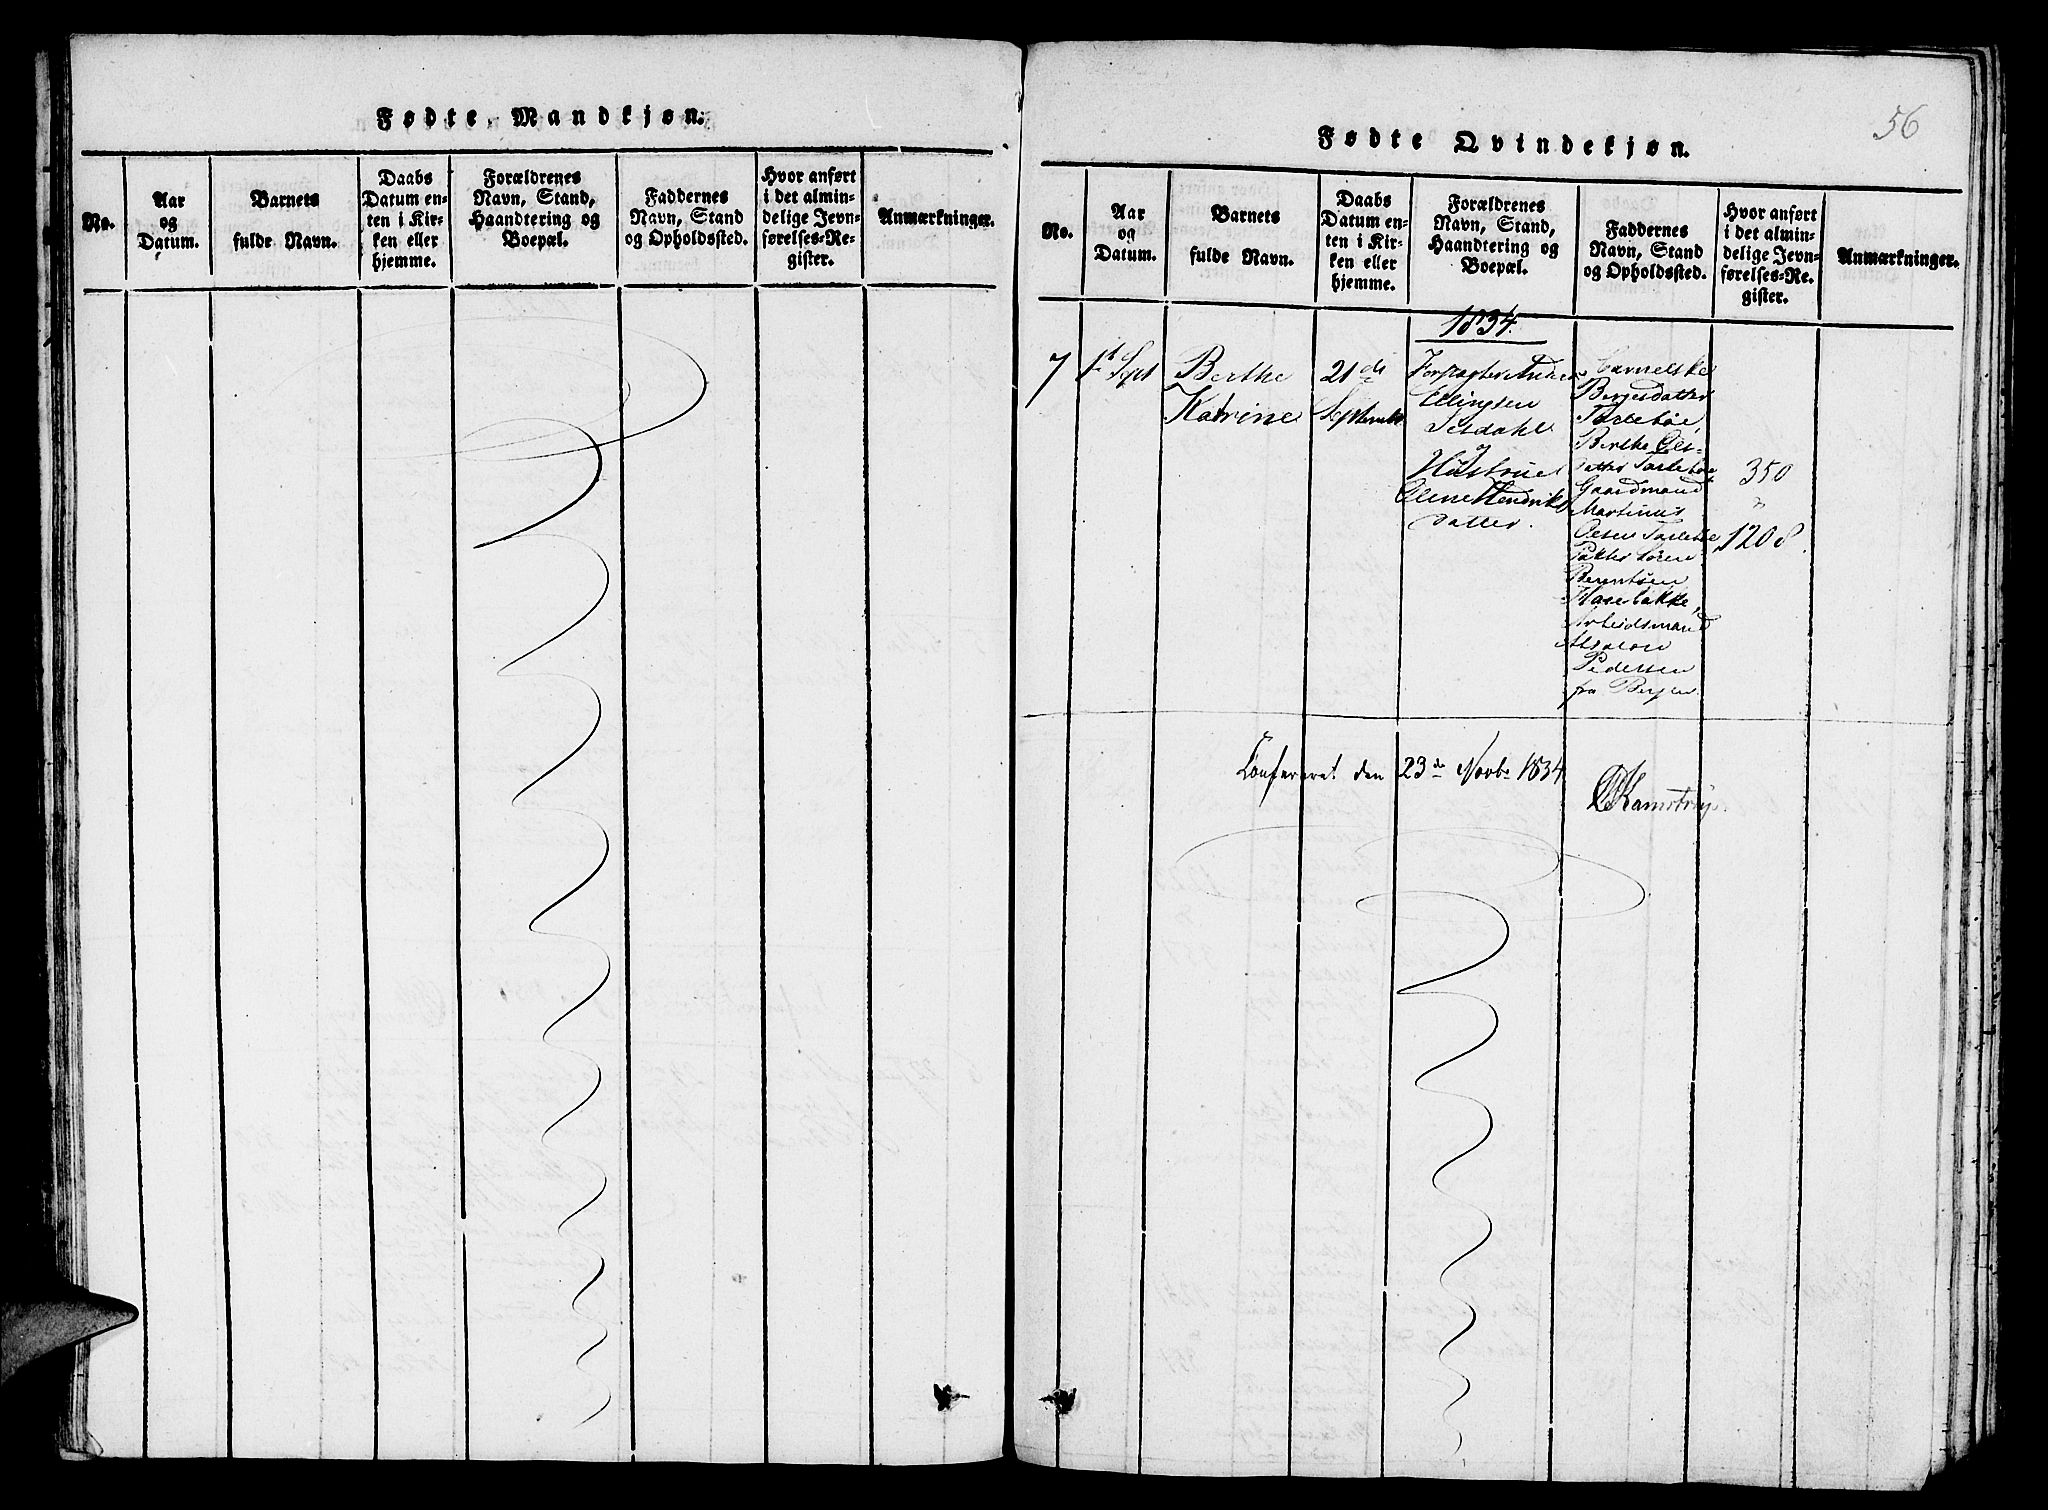 Fødte Mandkjøn.
No.
Aar
og
Datum.
Barnets
fulde Navn.
Daabs
Datum en-
ten i Kir-
ken eller
hjemme.
Forældrenes
Navn, Stand,
Haandtering og
Boepæl.
Faddernes
Navn, Stand
og Opholdssted.
Hvor anført
i det almin-
delige Jevn-
førelses-Re-
gister.
Anmærkninger.
56
Fødte Qvindekjøn.
No.
Aar
og
Datum.
Barnets
fulde Navn.
Daabs
Datum en-
ten i Kir-
ken eller
hjemme.
Forældrenes
Navn, Stand,
Haandtering og
Boepæl.
Faddernes
Navn, Stand
og Opholdssted.
Hvor anført
i det almin-
delige Jevn-
førelses-Re-
gister.
Anmærkninger.
1834.
7
1st Sept
Berthe
Katrine
21de
Septembr
Forpagter Anders
Ellingsen
Hustrue
Oline Hendriks
datter.
Bergesdatter
Berthe Ols-
datter
Gaardmand
Martinus
Olsen
Søren
Berntsen
Arbeidsmand
Absalon
Pedersen
fra Bergen
350
"
1208.
Confereret den 23de Novbr 1834
Kamstrup.